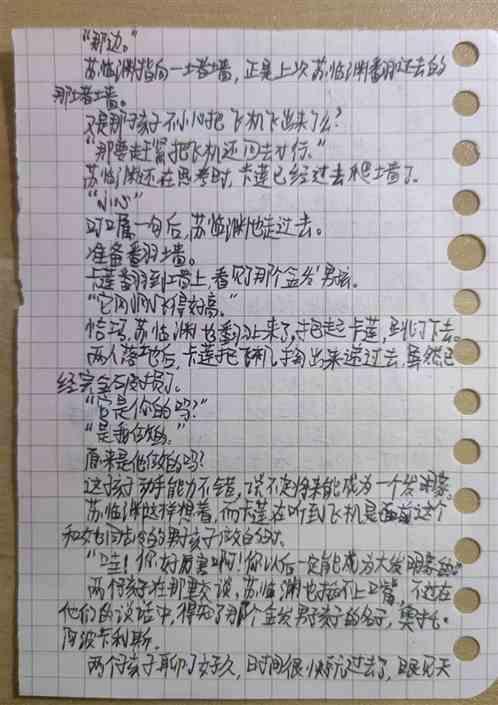 “那边。”
苏临渊指向一堵墙，正是上次苏临渊翻过去的
那堵墙。
又是那孩子不小心把飞机飞出来了么？
“那要赶紧把飞机还回去才行。”
苏临渊还在思考时，卡莲已经过去爬墙了。
“小心”
叮嘱一句后，苏临渊也走过去。
准备翻过墙。
卡莲翻到墙上，看见了那个金发男孩。
“它刚刚飞得好高。”
恰巧，苏临渊也翻上来了，抱起卡莲，跳了下去。
两人落地后，卡莲把飞机掏出来递过去，虽然已
经完全破损了。
“它是你的吗？”
“是我做的。”
原来是他做的吗？
这孩子动手能力不错，说不定将来能成为一个发明家。
苏临渊这样想着，而卡莲在听到飞机是面前这个
和她同龄的男孩子做的时。
“哇！你好厉害啊！你以后一定能成为大发明家的”
两个孩子在那里交谈，苏临渊也插不上嘴，不过在
他们的谈话中，得知了那个金发男孩子的名字，奥托·
阿波卡利斯，
两个孩子聊了好久，时间很快就过去了，眼见天